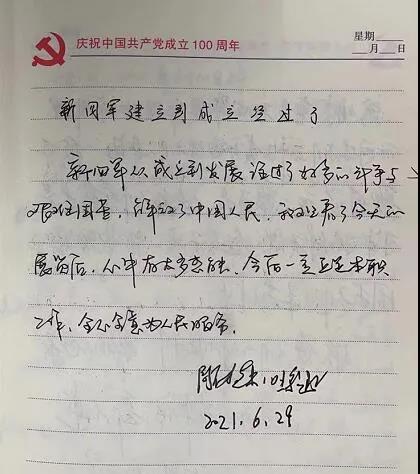 庆祝中国共产党成立100周年
星期
月 日
新四军建立到成立经过了
新四军从成立到发展经过了好多的斗争与
艰难困苦,解放了中国人民,
展览后,心中有太多感触,今后一定立足本职
工作,全心全意为人民服务。
2021.6.29